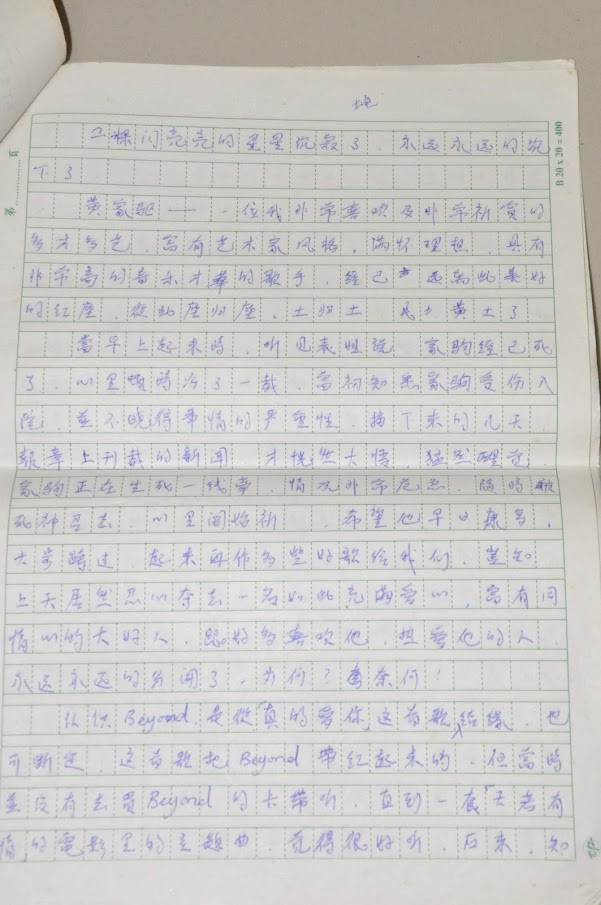 地
一棵闪亮亮的星星沉寂了，永远永远的沉
下了
黄家驹——一位我非常喜欢及非常欣赏的
多才多艺，富有艺术家风格，满怀理想，具有
非常高的音乐才华的歌手，经已远离此美好
的红座，從此座归座，土归土
當早上起来時，听见表姐说，家驹经已死
了，心里頓時冷了一截，當初知悉家驹受伤入
院，並不晓得事情的严重性，接下来的几天
報章上刊载的新闻，才恍然大悟，猛然醒觉
家驹正在生死一线牵，情况非常危急，随時被
死神召去，心里開始祈，希望他早日康复，
大步跨过，起来再作多些好歌给我们，豈知
上天居然忍心夺去一名如此充满爱心，富有同
情心的大好人，跟好多喜欢他，热爱他的人
永远永远的分開了，为何？奈何！
认识 Beyond 是從「真的爱你」这首歌结缘，也
可断定，这首歌把 Beyond 带红起来的，但當時
並没有去買 Beyond 的卡带听，直到一套「天若有
情」的電影里的主题曲，觉得很好听，后来，知
B 20 x 20 = 400
第
頁